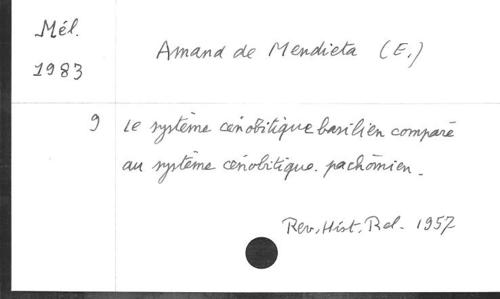 Mél.
1983
Amand de Mendieta (E.)
9
Le système cénobitique basilien comparé
au système cénobitique pachômien.
Rev. Hist. Rel. 1957